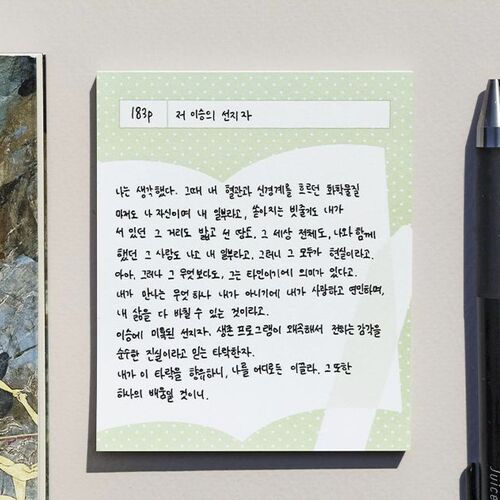 183p 저 이승의 선지자
나는 생각했다. 그때 내 혈관과 신경계를 흐르던 화학물질
마저도 나 자신이며 내 일부라고, 쏟아지는 빗줄기도 내가
서 있던 그 거리도 밟고 선 땅도, 그 세상 전체도, 나와 함께
했던 그 사람도 나고 내 일부라고. 그러니 그 모두가 현실이라고.
아아. 그러나 그 무엇보다도, 그는 타인이기에 의미가 있다고.
내가 만나는 무엇 하나 내가 아니기에 내가 사랑하고 연민하며,
내 삶을 다 바칠 수 있는 것이라고.
이승에 미혹된 선지자. 생존 프로그램이 왜곡해서 전하는 감각을
순수한 진실이라고 믿는 타락한자.
내가 이 타락을 향유하니, 나를 어디로든 이끌라. 그 또한
하나의 배움일 것이니.
Juice